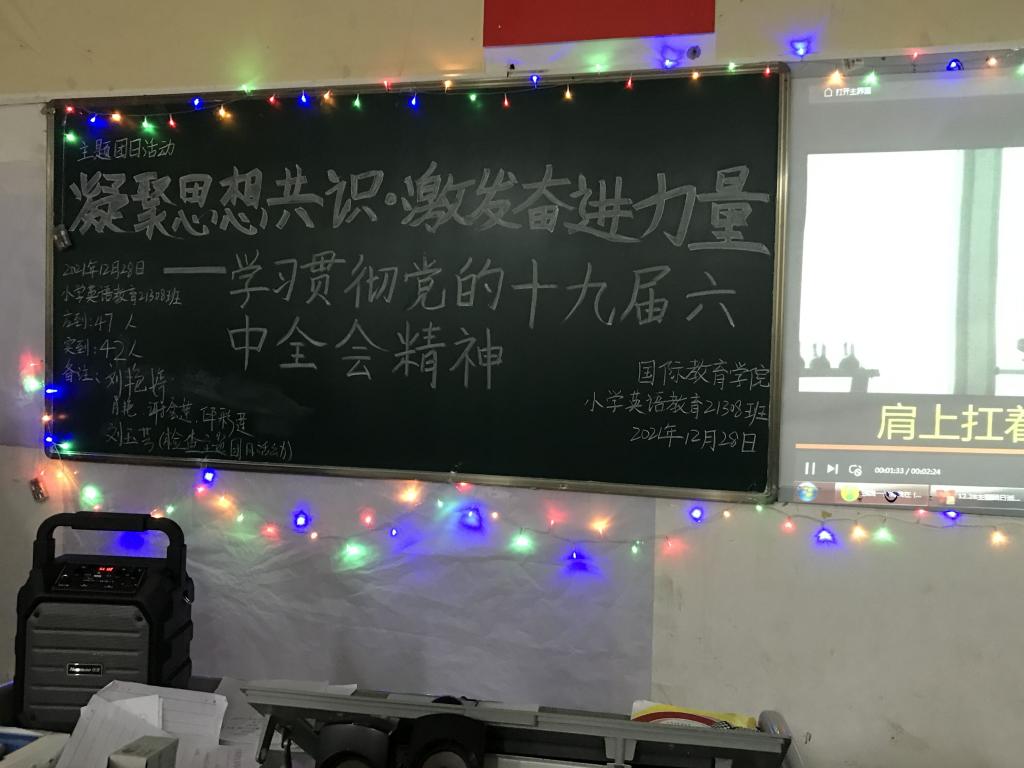 主题团日活动
凝聚思想共识·激发奋进力量
——学习贯彻党的十九届六
中全会精神
2021年12月28日
小学英语教育21308班
应到:47人
实到:42人
备注:刘艳婷
肖艳
刘玉芳(检查主题团日活动)
国际教育学院
小学英语教育21308班
2021年12月28日
打开主界面
肩上扛着
00:01:33 / 00:02:24